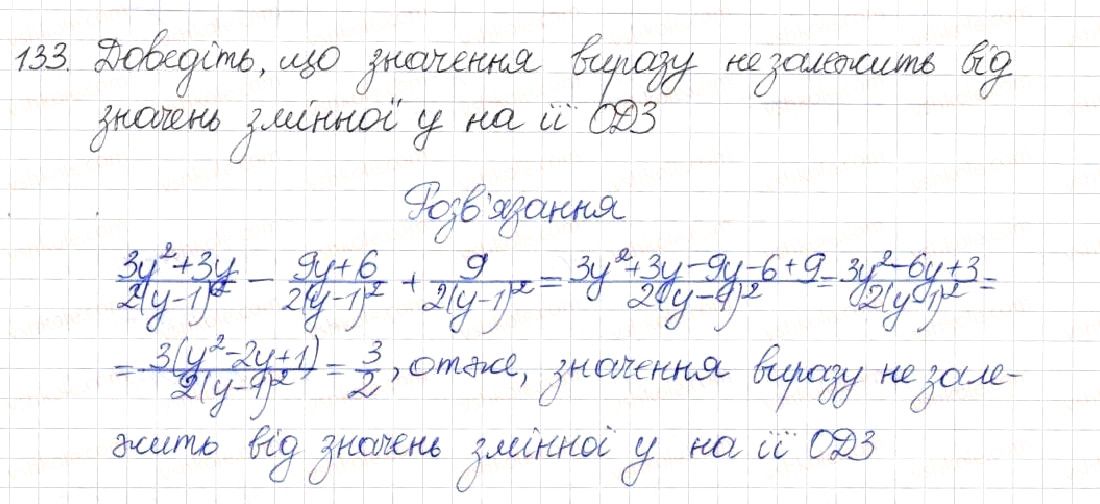 133. Доведіть, що значення виразу не залежить від
значень змінної y на її ОДЗ
Розв'язання
(3y²+3y)/(2(y-1)²) - (9y+6)/(2(y-1)²) + 9/(2(y-1)²) = (3y²+3y-9y-6+9)/(2(y-1)²) = (3y²-6y+3)/(2(y-1)²) =
= (3(y²-2y+1))/(2(y-1)²) = 3/2, отже, значення виразу не зале-
жить від значень змінної y на її ОДЗ